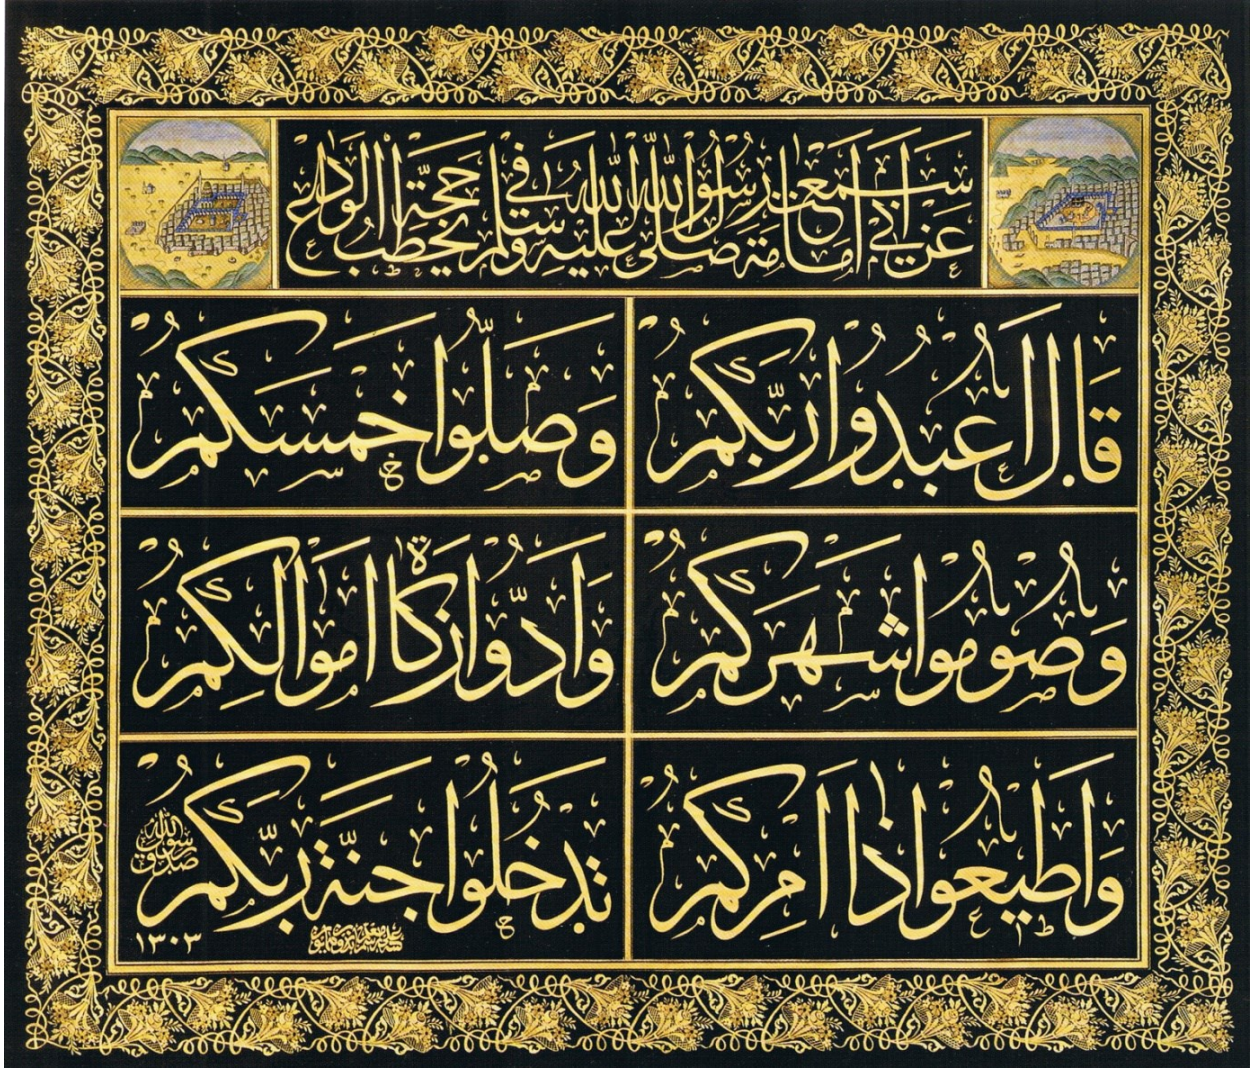 عن ابى امامة سمعت رسول الله صلى الله عليه وسلم يخطب فى حجة الوداع
قال اعبدوا ربكم
وصلوا خمسكم
وصوموا شهركم
وادوا زكاة اموالكم
واطيعوا ذا امركم
تدخلوا جنة ربكم
صدق رسول الله
١٣٠٣